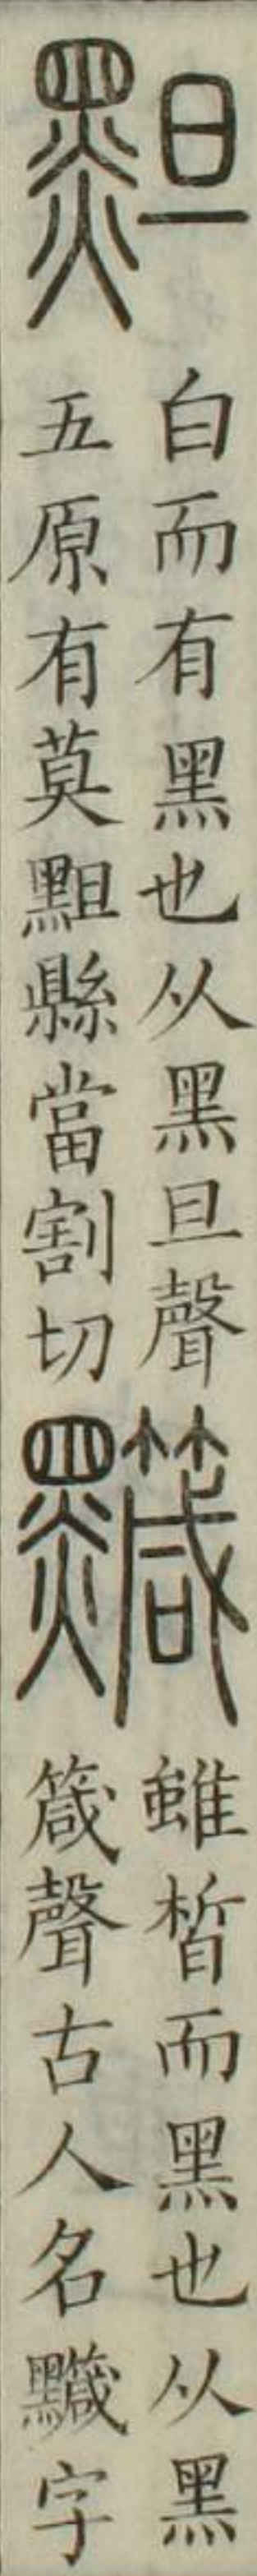 䵣
白而有黑也从黑旦聲
五原有莫䵣縣當割切
𪒹
雖皙而黑也从黑
箴聲古人名𪒹字